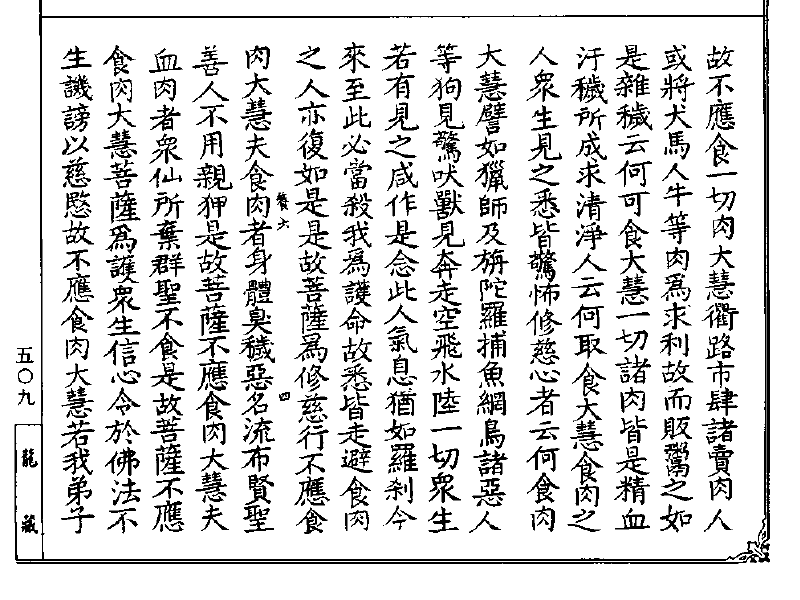 故不應食一切肉大慧衢路市肆諸賣肉人
或將犬馬人牛等肉為求利故而販鬻之如
是雜穢云何可食大慧一切諸肉皆是精血
汙穢所成求清淨人云何取食大慧食肉之
人眾生見之悉皆驚怖修慈心者云何食肉
大慧譬如獵師及旃陀羅捕魚網鳥諸惡人
等狗見驚吠獸見奔走空飛水陸一切眾生
若有見之咸作是念此人氣息猶如羅剎今
來至此必當殺我為護命故悉皆走避食肉
之人亦復如是是故菩薩為修慈行不應食
養六
四
肉大慧夫食肉者身體臭穢惡名流布賢聖
善人不用親狎是故菩薩不應食肉大慧夫
血肉者眾仙所棄群聖不食是故菩薩不應
食肉大慧菩薩為護眾生信心令於佛法不
生譏謗以慈愍故不應食肉大慧若我弟子
五〇九
龍藏